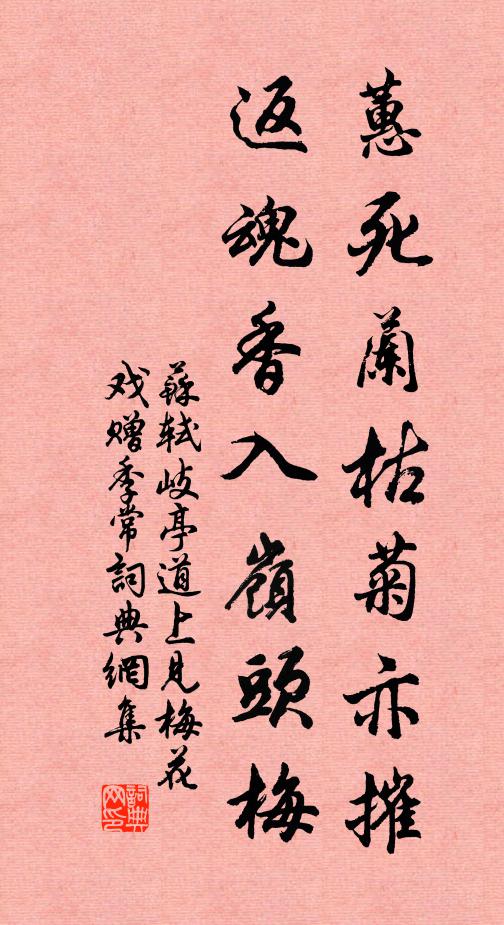 蕙死蘭枯菊亦摧
返魂香入嶺頭梅
蘇軾岐亭道上見梅花
戏贈季常詞典網集
詞典网印